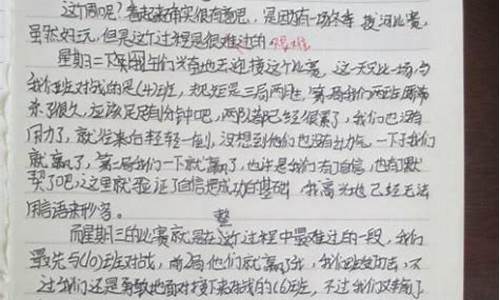 这个周呢?看起来确实很有意思,是因为有一场冬季拔河比赛,
虽然好玩,但是这个过程是很难过的 很难
星期二下午同学们兴奋地去迎接这个比赛,这一天又比一场与
我们班对战的是(4)班,规矩是三局两胜,第一局我们两班
来了很久,应该足足有1分钟吧,两队都已经很累了,我们也没有
用力了,就往来自轻轻一倒,没想到他们也没有力气,一下子我们
就赢了,第二局我们一下就赢了,也许是我们有了自信,也有默
契了吧,这里就验证了自信是成功的基础,我高兴地已经无法
用言语来形容。
整
而星期三的比赛就是在这个过程中最难过的一段,我们
最先与(10)班对战,前2局他们就赢了我,我们班没力去,不
过我们还是勇敢地面对接下来对战的(6)班,不过我们又输了